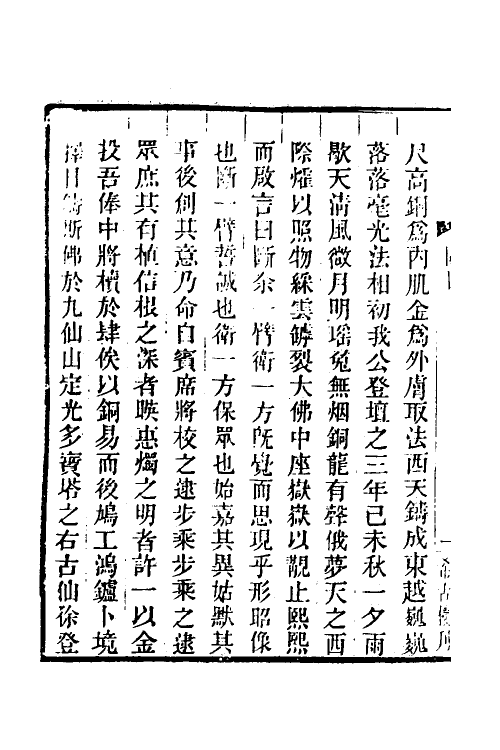 尺高銅爲內肌金爲外膚取法西天鑄成東越巍巍
落落毫光法相初我公登壇之三年己未秋一夕雨
歇天清風微月明瑶兔無烟銅龍有聲俄夢天之西
際燿以照物綵雲罅裂大佛中座嶽嶽以覩止熙熙
而啟言曰斷余一臂衛一方旣覺而思現乎形昭像
也斷一臂誓誠也衛一方保眾也始嘉其異姑默其
事後創其意乃命自賓席將校之逮步乘步乘之逮
眾庶其有植信根之深者暎惠燭之明者許一以金
投吾俸中將櫝於肆俟以銅易而後鳩工鴻鑪卜境
擇日鑄斯佛於九仙山定光多寶塔之右古仙徐登